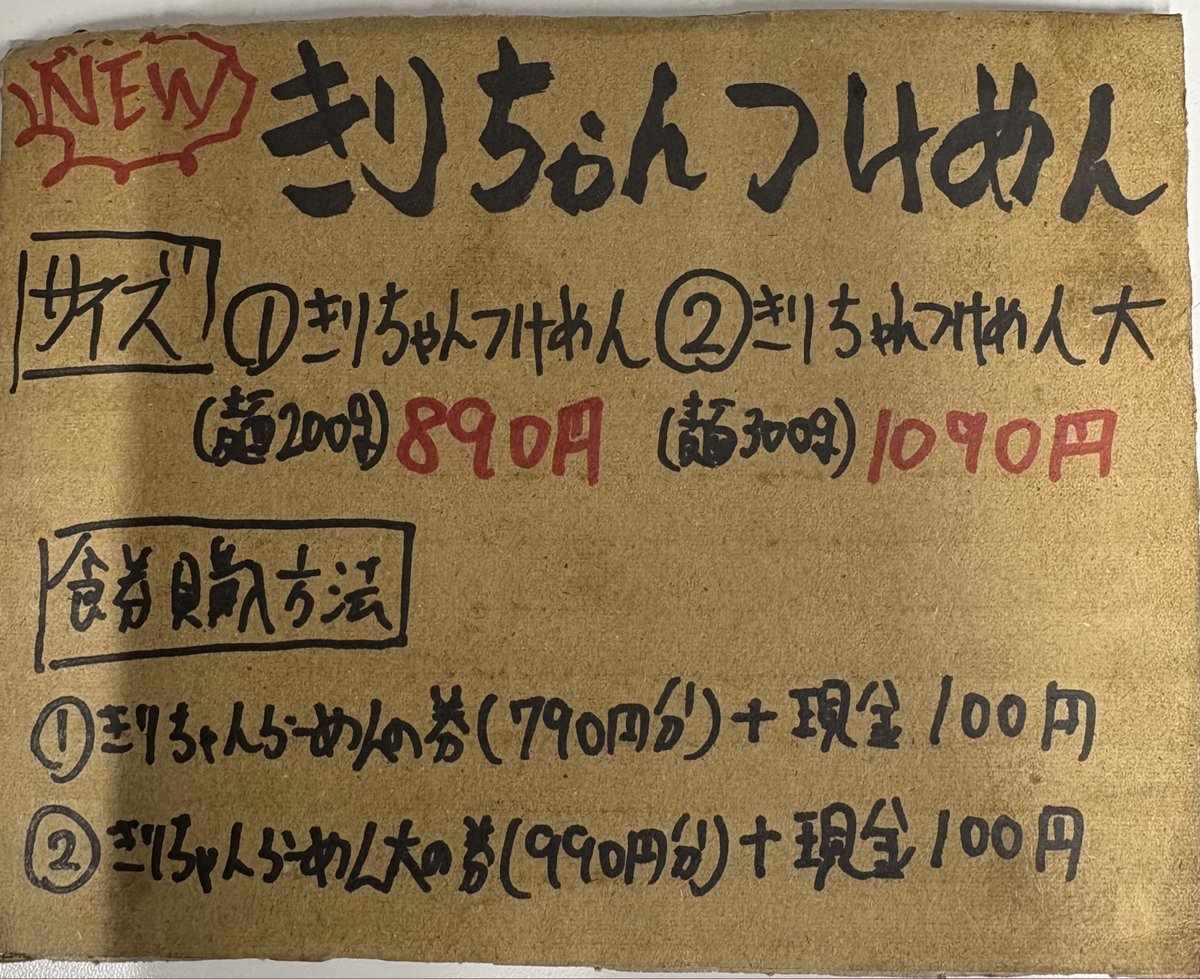 NEW
きりちゃんつけめん
サイズ ①きりちゃんつけめん ②きりちゃんつけめん 大
(麺200g) 890円 (麺300g) 1090円
食券購入方法
①きりちゃんらーめんの券(790円分)+現金100円
②きりちゃんらーめん大の券(990円分)+現金100円